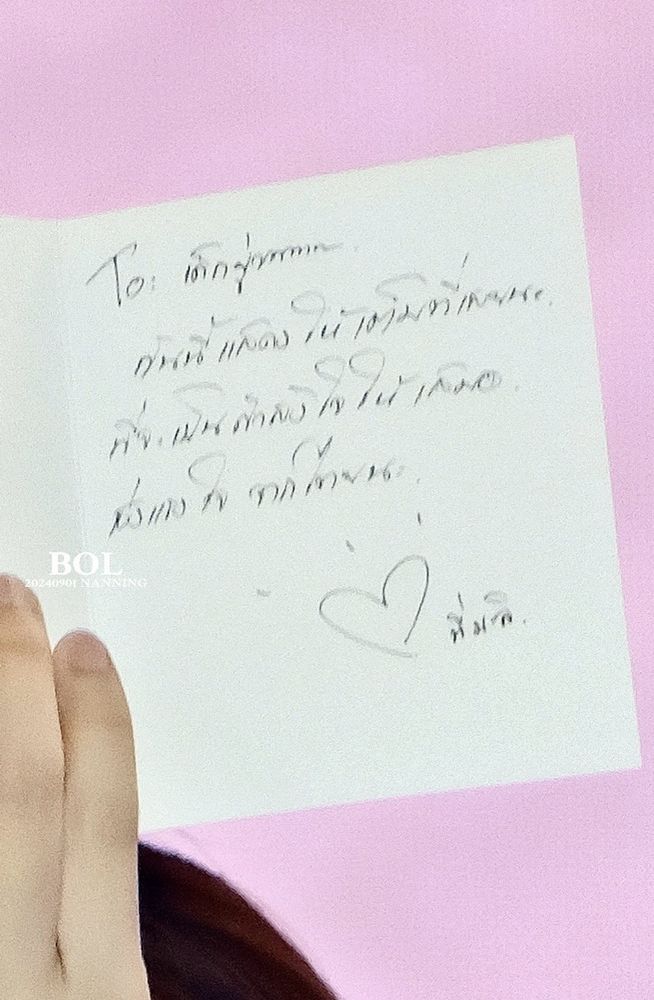 To: เด็กญี่
วันนี้แสดงให้เต็มที่เลยนะ.
พี่จะเป็นกำลังใจให้เสมอ.
ส่งแรงใจ จากไทยนะ.
พี่มะลิ.
BOL
20240901 NANNING